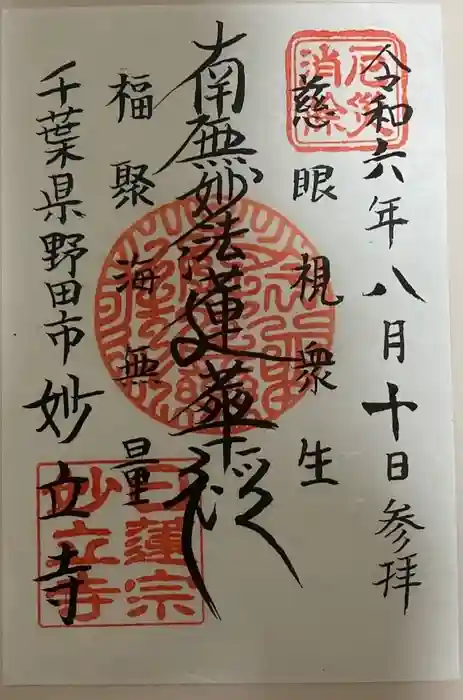 令和六年八月十日参拝
厄災消除
慈眼視衆生
南無妙法蓮華経
福聚海無量
千葉県野田市妙立寺
日蓮宗
妙立寺